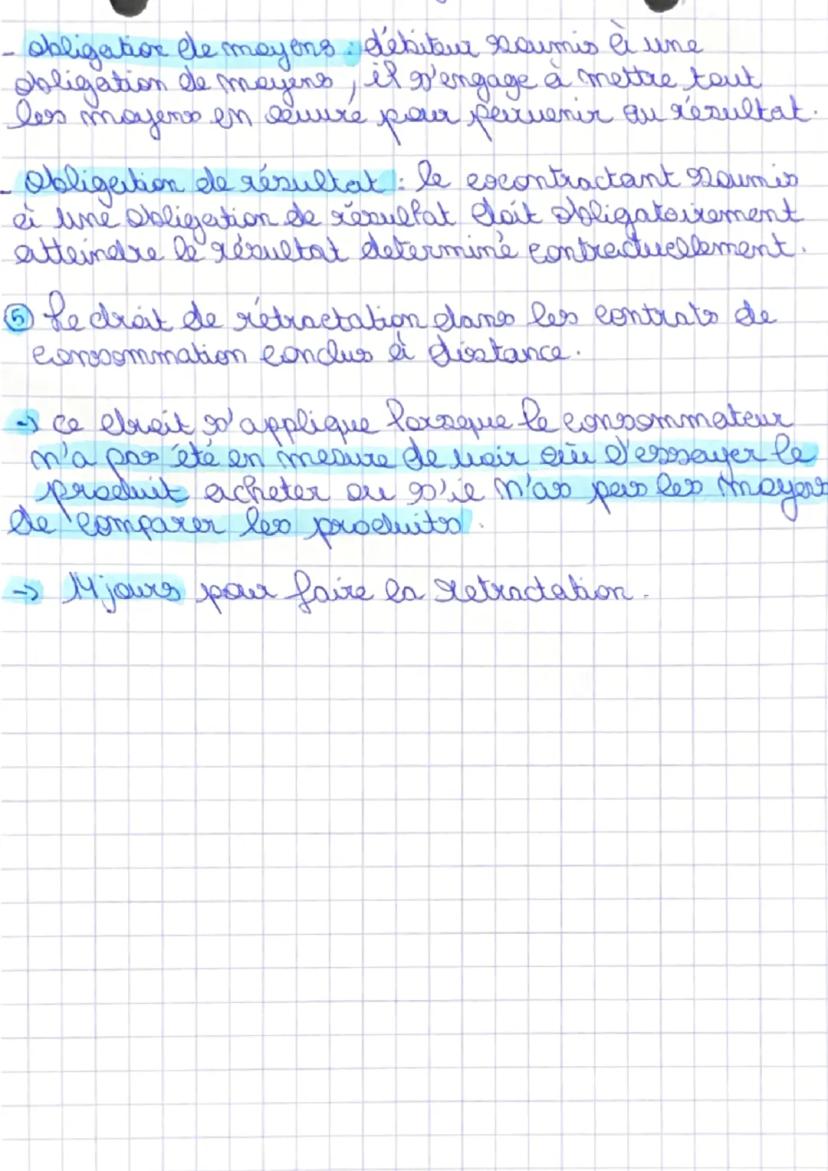 - obligation de moyens : débiteur soumis à une
obligation de moyens, il s'engage à mettre tout
les moyens en œuvre pour parvenir au résultat.
- Obligation de résultat : le cocontractant soumis
à une obligation de résultat doit obligatoirement
atteindre le résultat determiné contractuellement.
⑤ Le droit de rétractation dans les contrats de
consommation conclus à distance.
→ ce droit s'applique lorsque le consommateur
n'a pas été en mesure de voir où d'essayer le
produit acheter ou s'ie n'as pas les moyens
de comparer les produits.
→ 14 jours pour faire la retractation.